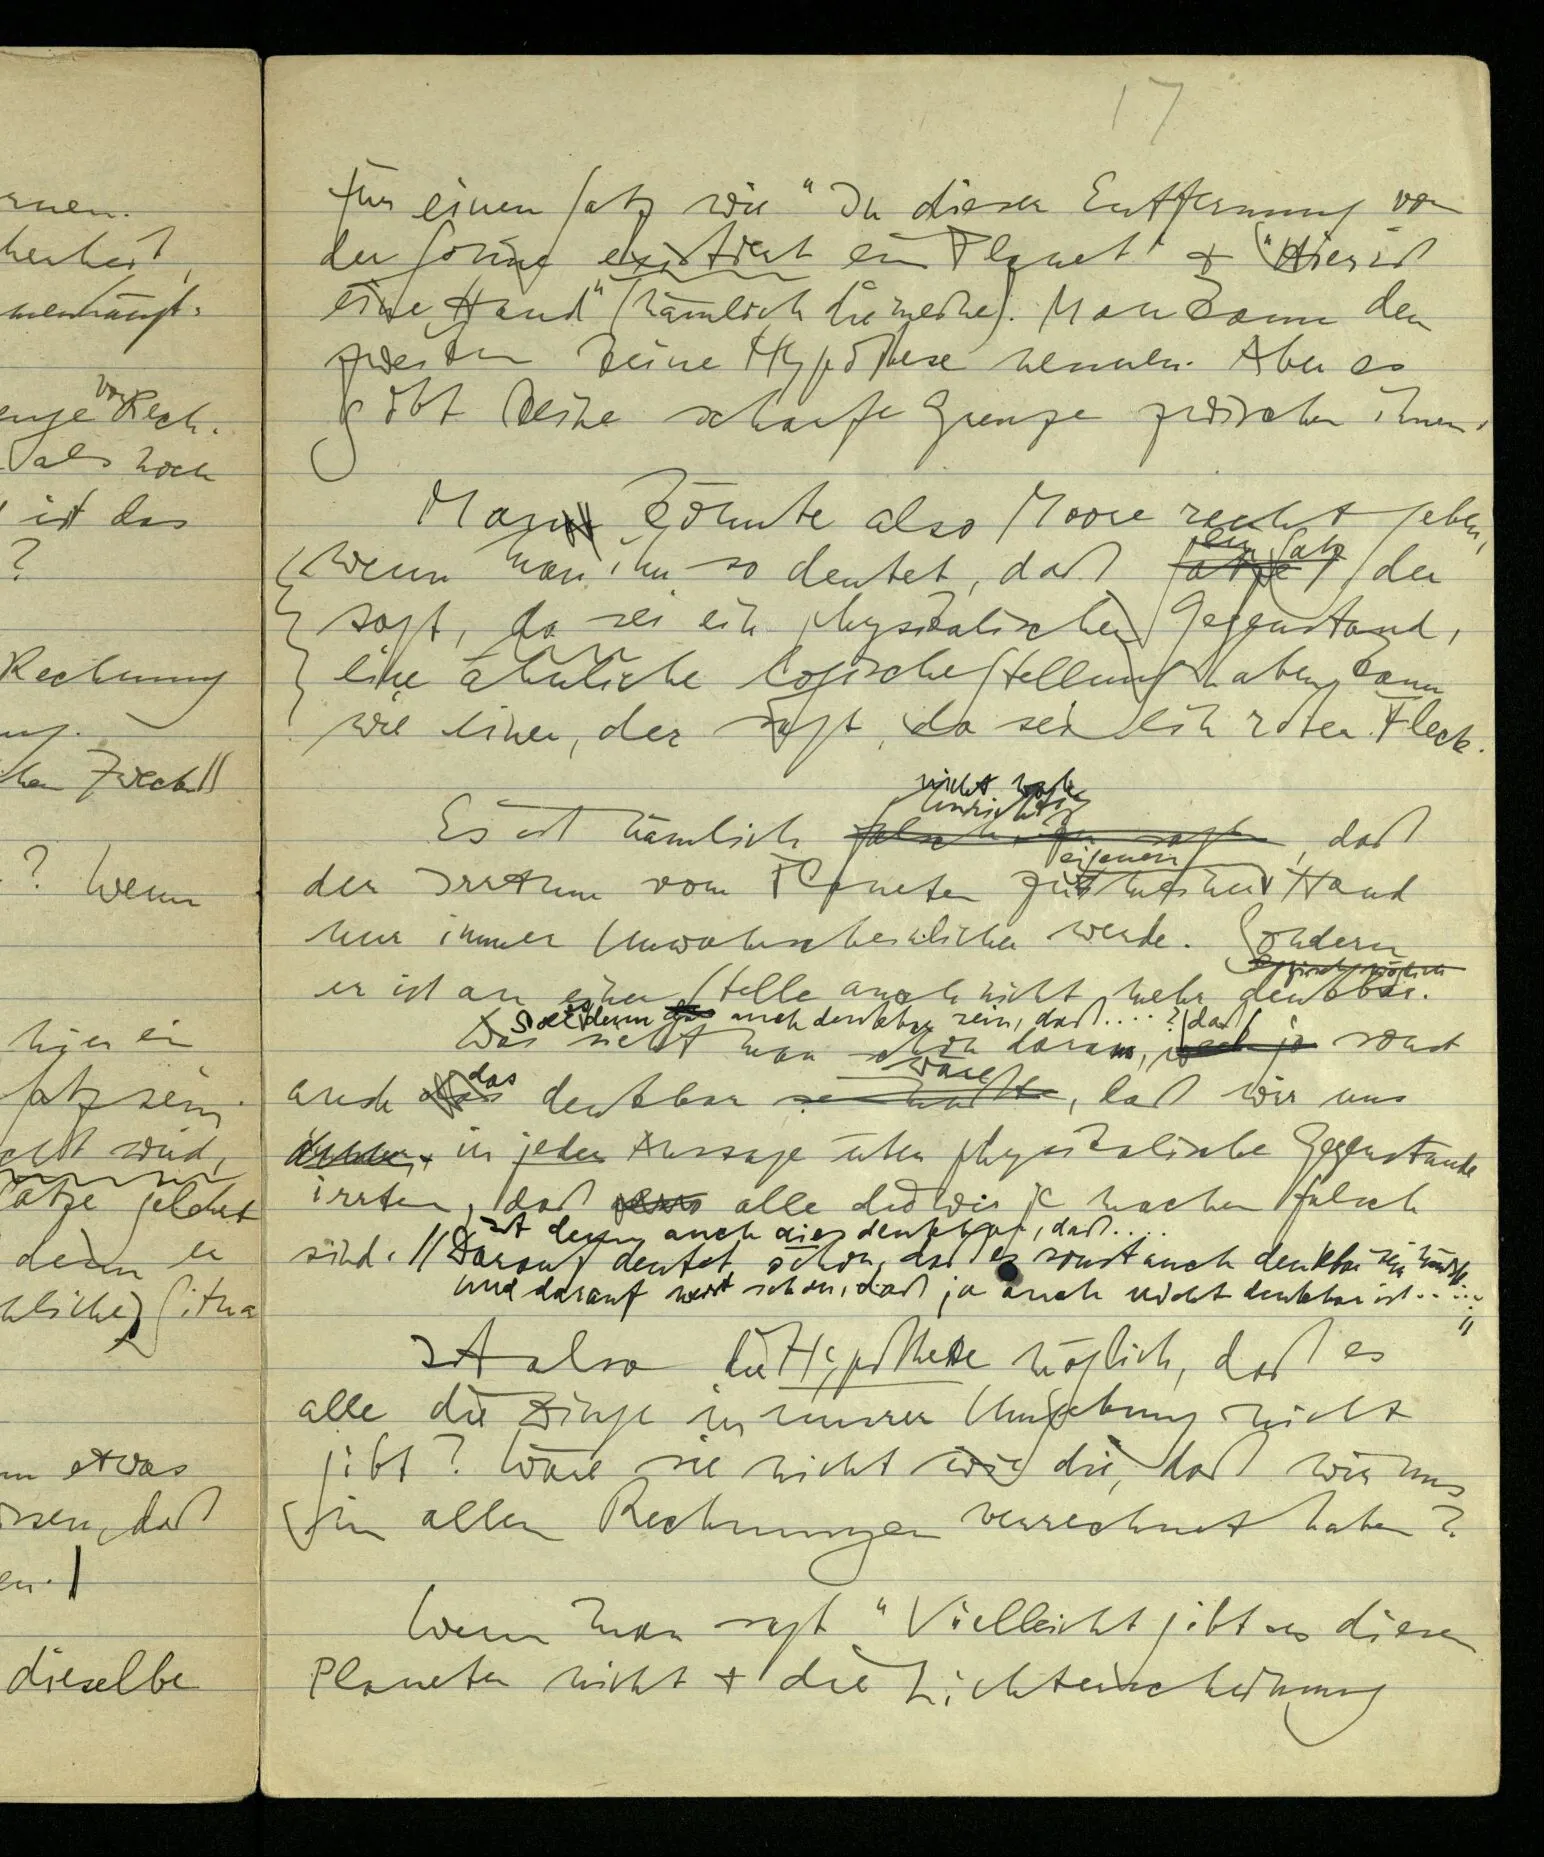 rnen.
herheit,
menhängt.
enge von Rech-
als noch
ist das
?
Rechnung
ng.
hen Zweck ||
? Wenn
hier ein
satz sein
cht wird,
ätze gelehrt
denn er
liche) Situa
m etwas
ssen, daß
en. |
dieselbe
17
für einen Satz wie "In dieser Entfernung von
der Sonne existiert ein Planet" + "Hier ist
eine Hand" (nämlich die meine). Man kann den
zweiten keine Hypothese nennen. Aber es
gibt keine scharfe Grenze zwischen ihnen.
Man könnte also Moore recht geben,
ein Satz
wenn man ihn so deutet, daß Sätze, der
sagt, da sei ein physikalischer Gegenstand,
eine ähnliche logische Stellung haben kann
wie einer, der sagt, da sei ein roter Fleck.
nicht wahr
unrichtig
Es ist nämlich falsch, zu sagen, daß
eigenen
der Irrtum vom Planeten zu meiner Hand
nur immer unwahrscheinlicher werde. Sondern
logisch möglich
er ist an einer Stelle auch nicht mehr denkbar.
Soll es denn auch denkbar sein, daß....? daß
Das sieht man schon daran, weil ja sonst
das wäre
auch das denkbar sein müßte, daß wir uns
in jeder Aussage über physikalische Gegenstände
irrten, daß alle die wir je machen falsch
ist denn auch dies denkbar, daß....
sind. || Darauf deutet schon, daß es sonst auch denkbar sein müßte,..
und darauf weist schon, daß ja auch nicht denkbar ist..... ||
Ist also die Hypothese möglich, daß es
alle die Dinge in unsrer Umgebung nicht
gibt? Wäre sie nicht wie die, daß wir uns
in allen Rechnungen verrechnet haben?
Wenn man sagt "Vielleicht gibt es diesen
Planeten nicht + die Lichterscheinung